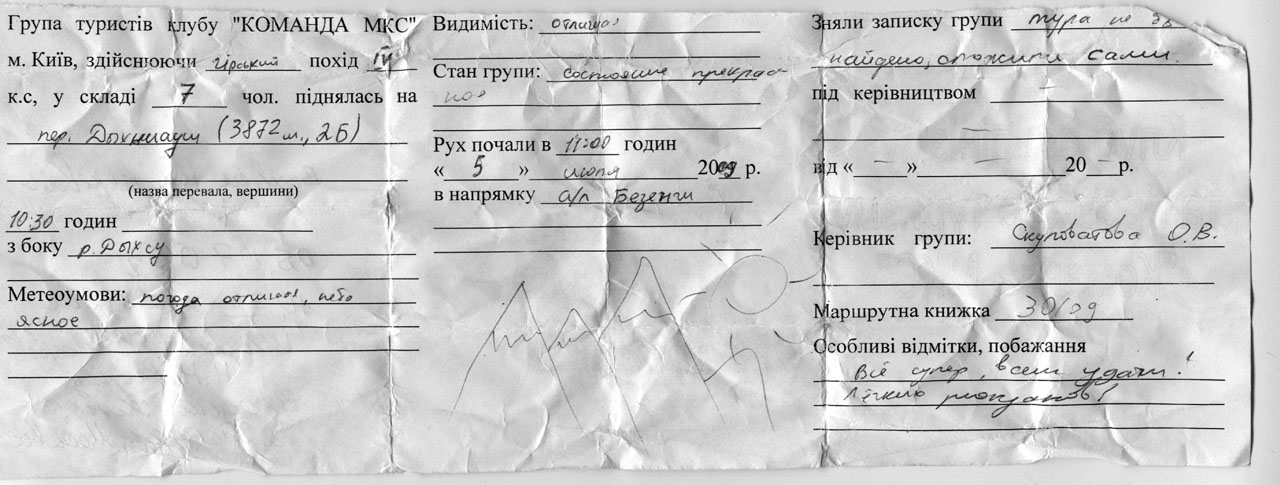 Група туристів клубу "КОМАНДА МКС"
м. Київ, здійснюючи гірський похід IV
к.с, у складі 7 чол. піднялась на
пер. Дыхниауш (3872 м., 2Б)
(назва перевала, вершини)
10:30 годин
з боку р. Дыхсу
Метеоумови: погода отличная, небо
ясное
Видимість: отличная
Стан групи: состояние прекрас
ное
Рух почали в 11:00 годин
« 5 » июля 2009 р.
в напрямку а/л Безенги
Зняли записку групи тура не
найдено, сложили сами.
під керівництвом —
—
від « — » — 20 — р.
Керівник групи: Скуловатова О.В.
Маршрутна книжка 30/09
Особливі відмітки, побажання
Всё супер, всем удачи!
Лёгких рюкзаков!